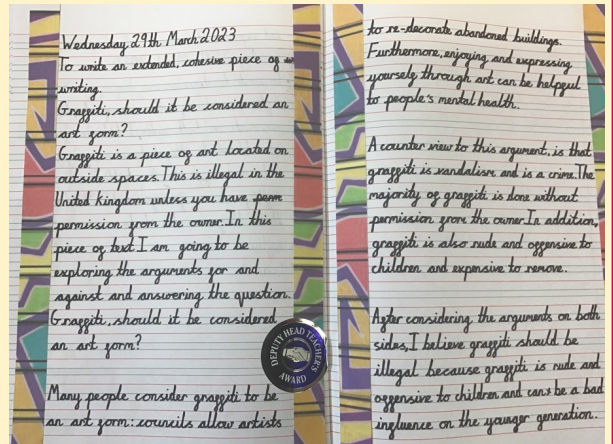 Wednesday 29th March 2023
To write an extended, cohesive piece of
writing.
Graffiti, should it be considered an
art form?
Graffiti is a piece of art located on
outside spaces. This is illegal in the
United Kingdom unless you have perm
permission from the owner. In this
piece of text I am going to be
exploring the arguments for and
against and answering the question.
Graffiti, should it be considered
an art form?
Many people consider graffiti to be
an art form: councils allow artists
DEPUTY HEAD TEACHER'S
AWARD
to re-decorate abandoned buildings.
Furthermore, enjoying and expressing
yourself through art can be helpful
to people's mental health.
A counter view to this argument, is that
graffiti is vandalism and is a crime. The
majority of graffiti is done without
permission from the owner. In addition,
graffiti is also rude and offensive to
children and expensive to remove.
After considering, the arguments on both
sides, I believe graffiti should be
illegal because graffiti is rude and
offensive to children and can be a bad
influence on the younger generation.